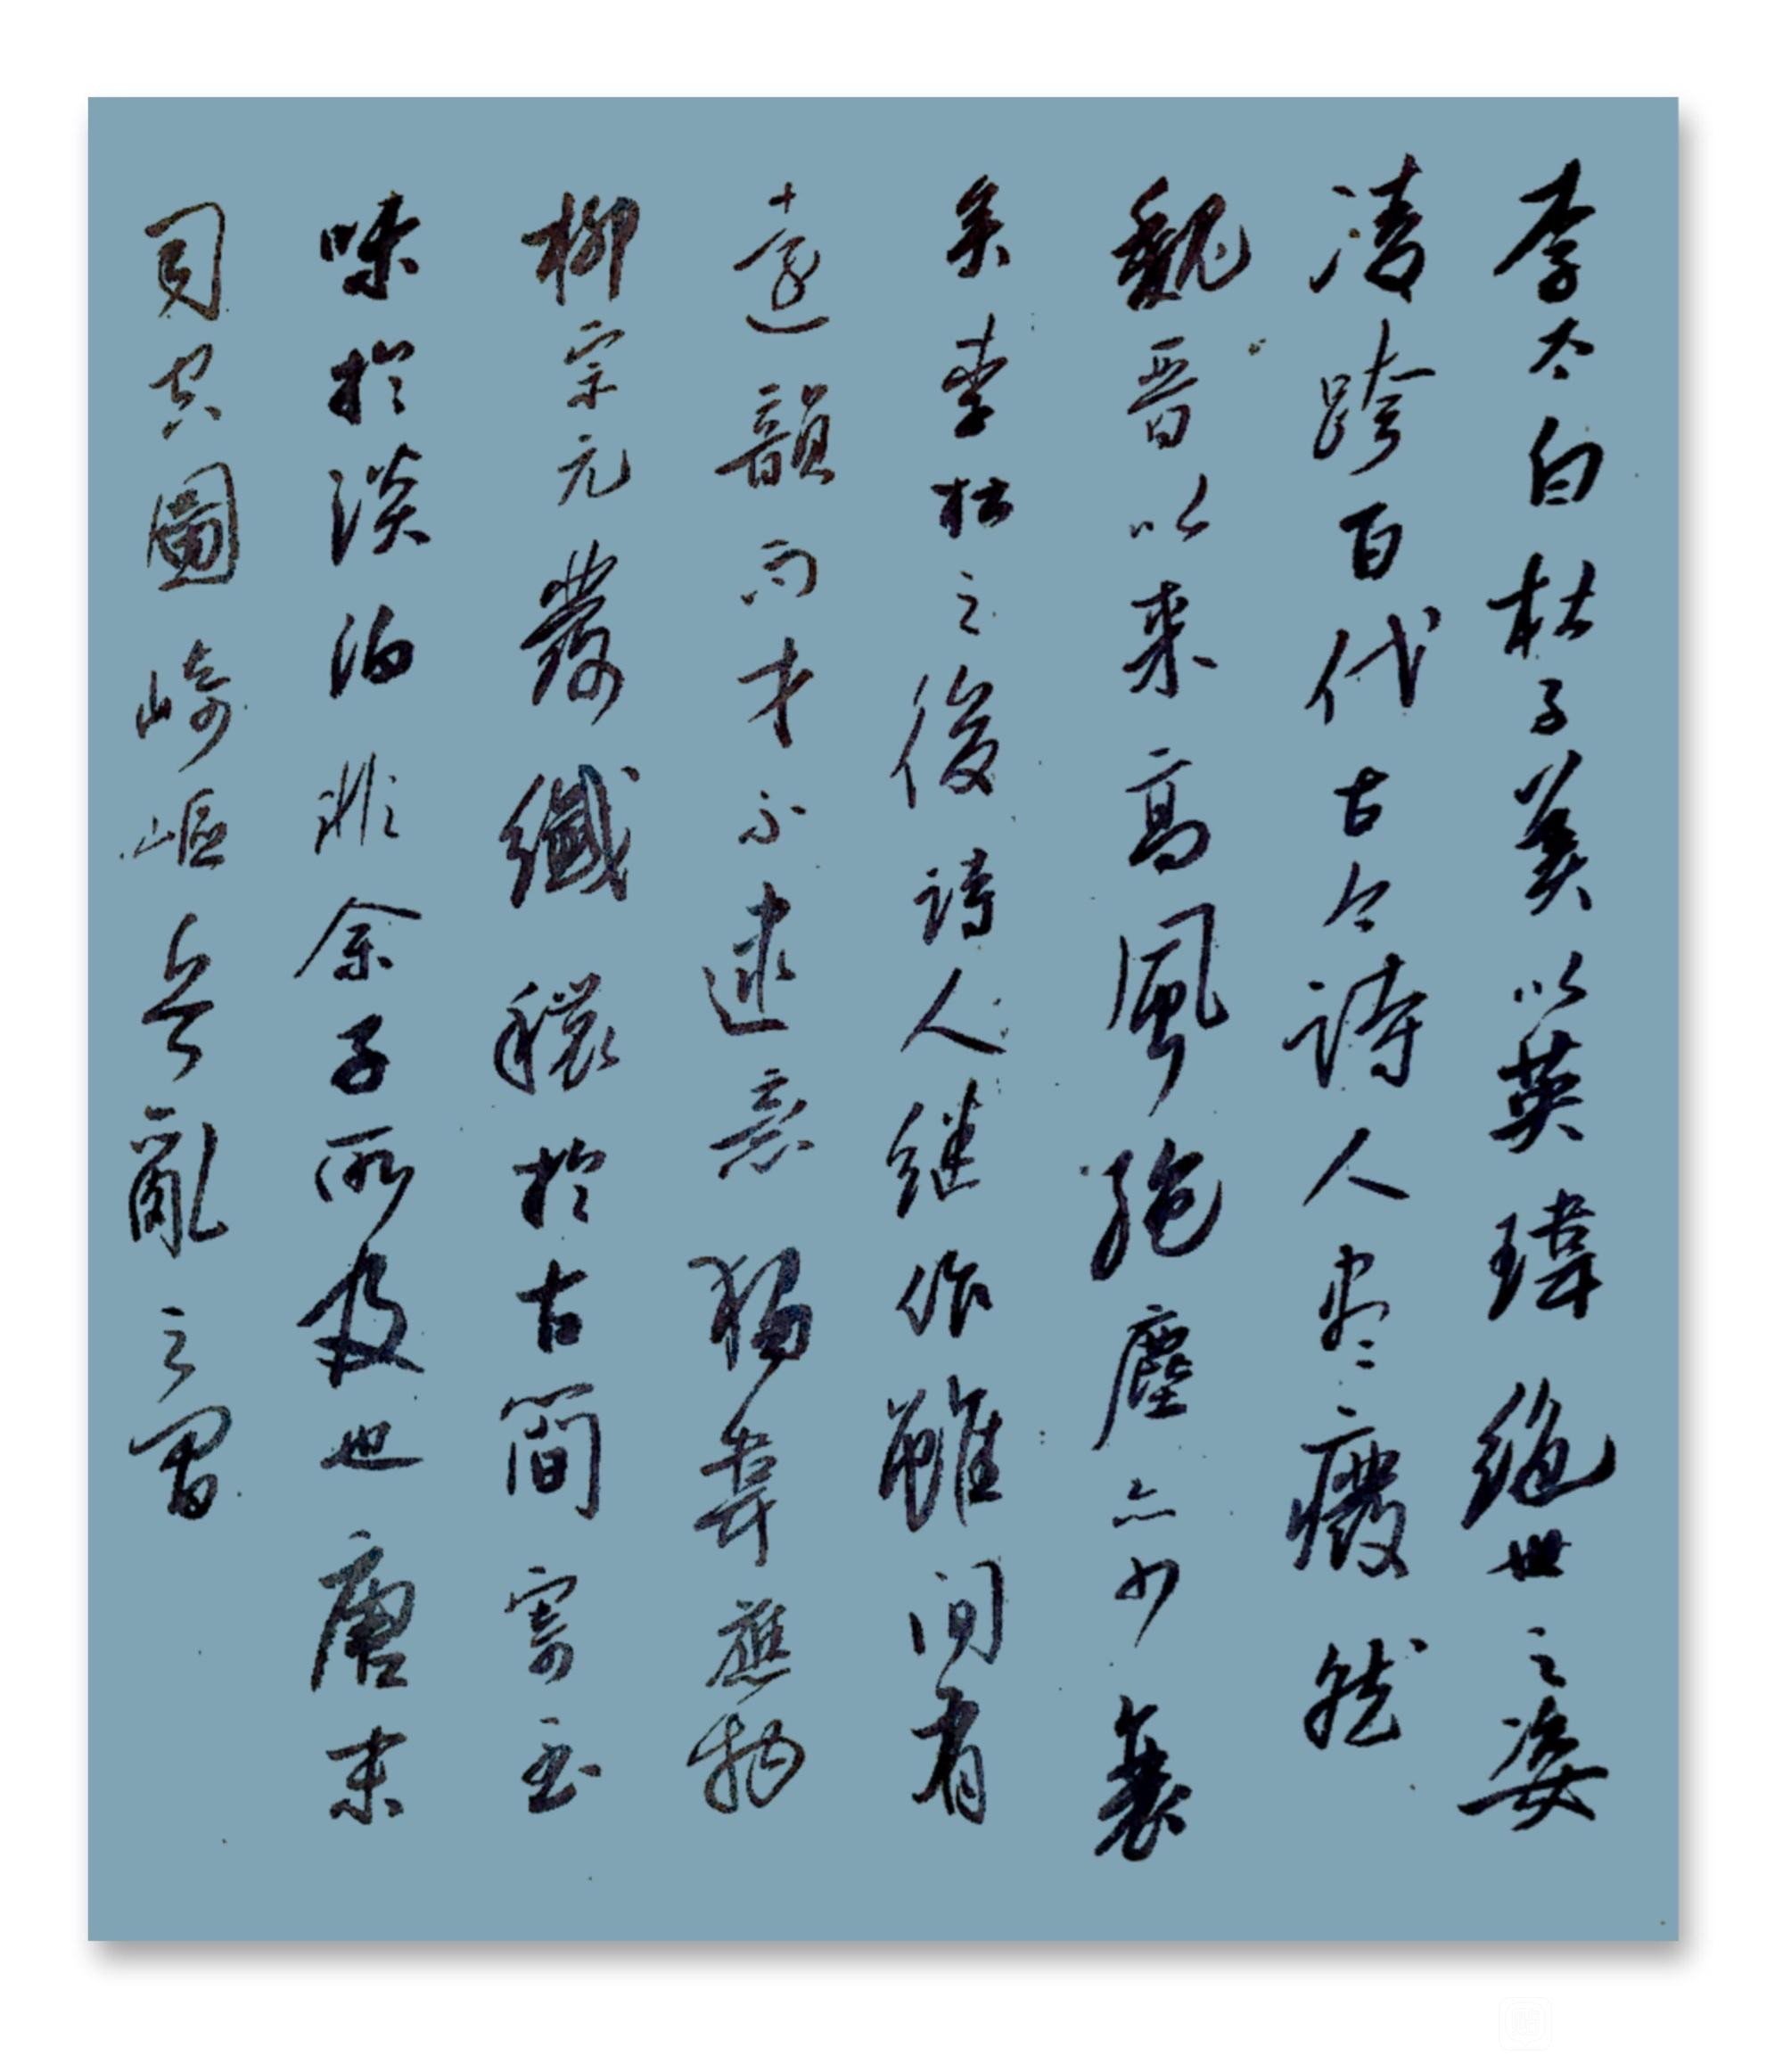 李太白杜子美以英瑋絶世之姿
凌跨百代古今詩人盡廢然
魏晋以来高風絶塵亦少衰
矣李杜之後詩人继作雖間有
遠韻而才不逮意獨韋應物
柳宗元發纖穠於古簡寄至
味於淡泊非余子所及也唐末
司空圖崎嶇兵亂之間